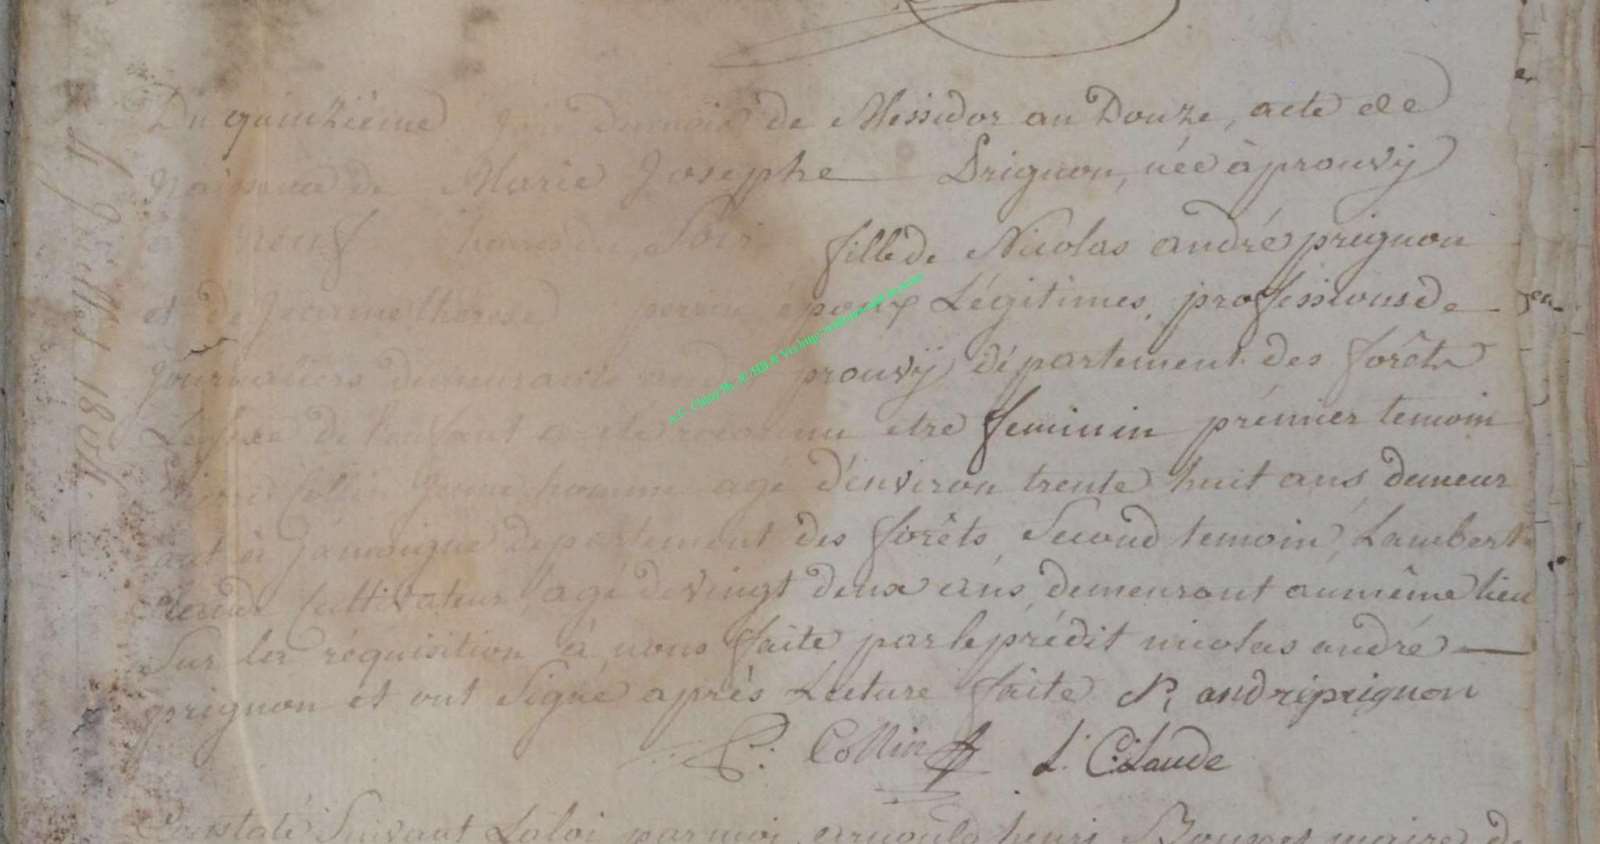 Du quinzième jour du mois de Messidor an Douze, acte de
Naissance de Marie Josephe Prignon, née à prouvÿ
à neuf heures du Soir fille de Nicolas andré prignon
et de Jeanne therese perrin époux Légitimes, professions de
journaliers demeurants prouvÿ département des forêts
Le sexe de l'enfant a été reconnu etre feminin prémier temoin
Collin Jeune homme agé d'environ trente huit ans demeur
ant à jamoigne departement des forêts, Second temoin, Lambert
Claude Cultivateur, agé de vingt deux ans, demeurant au même lieu
Sur la réquisition à nous faite par le prédit nicolas andré
prignon et ont Signé après Lecture faite N andriprignon
Collin L. C:Laude
Constaté Suivant La loi par moi henri maire de
1804